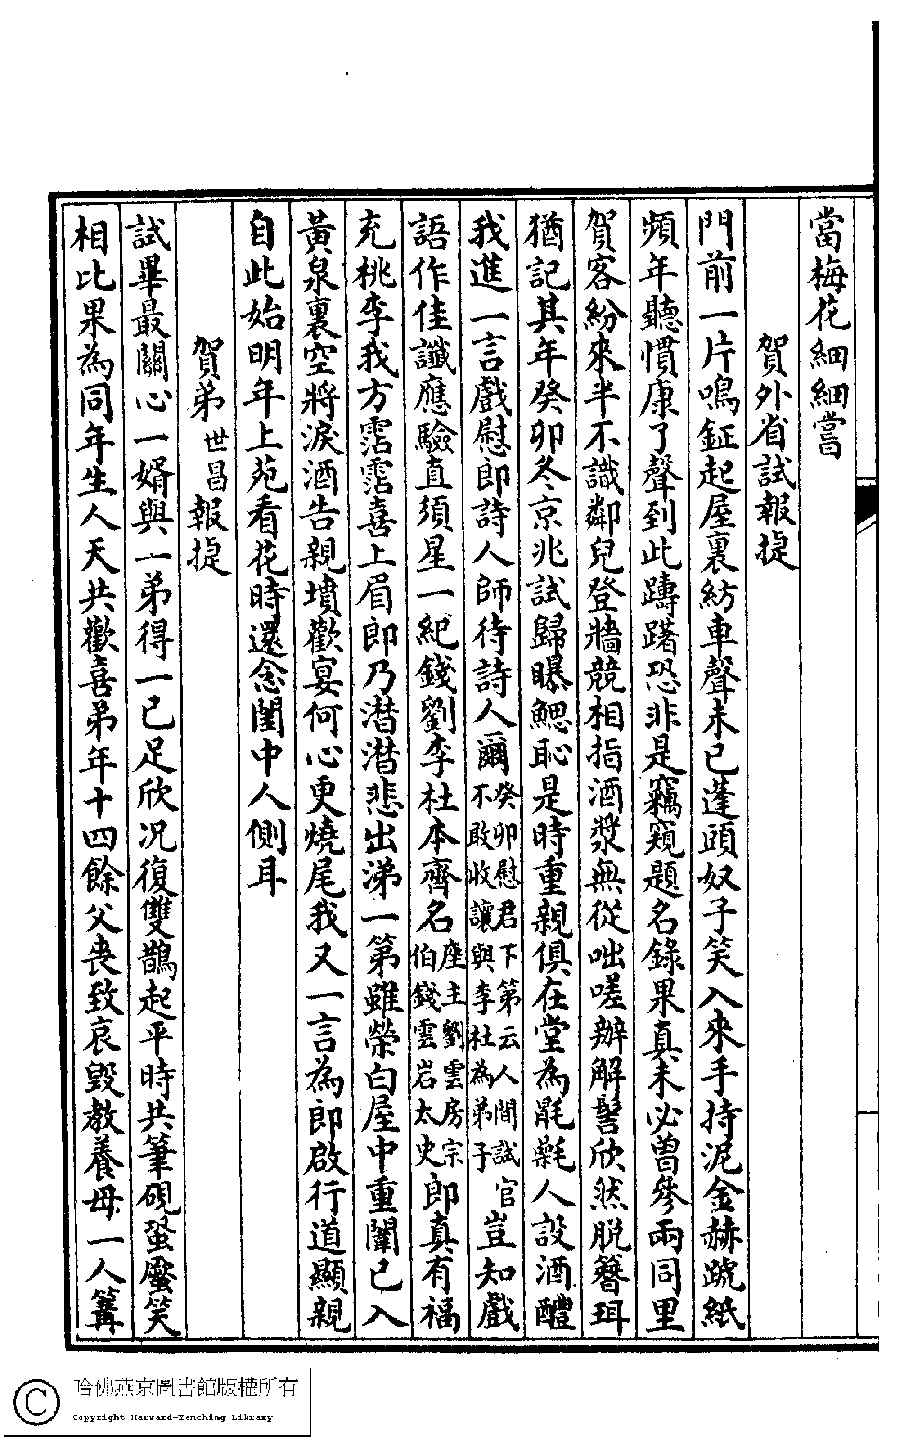 當梅花細細嘗
賀外省試報捷
門前一片鳴鉦起屋裏紡車聲未已蓬頭奴子笑入來手持泥金赫蹏紙
頻年聽慣康了聲到此躊躇恐非是竊窺題名錄果真未必曾參兩同里
賀客紛來半不識鄰兒登牆競相指酒漿無從咄嗟辦解髻欣然脫簪珥
猶記其年癸卯冬京兆試歸曝鰓恥是時重親俱在堂為毷氉人設酒醴
我進一言戲慰郎詩人師待詩人爾癸卯慰君下第云人間試官不敢收讓與李杜為弟子豈知戲
語作佳讖應驗直須星一紀錢劉李杜本齊名座主劉雲房宗伯錢雲岩太史郎真有福
充桃李我方霑霑喜上眉郎乃潸潸悲出涕一第雖榮白屋中重闈已入
黃泉裏空將淚酒告親墳歡宴何心更燒尾我又一言為郎啟行道顯親
自此始明年上苑看花時還念閨中人側耳
賀弟世昌報捷
試畢最關心一婿與一弟得一已足欣況復雙鵲起平時共筆硯蛩蟨笑
相比果為同年生人天共歡喜弟年十四餘父喪致哀毀教養母一人篝
哈佛燕京圖書館版權所有
Copyright Harvard-Yenching Library